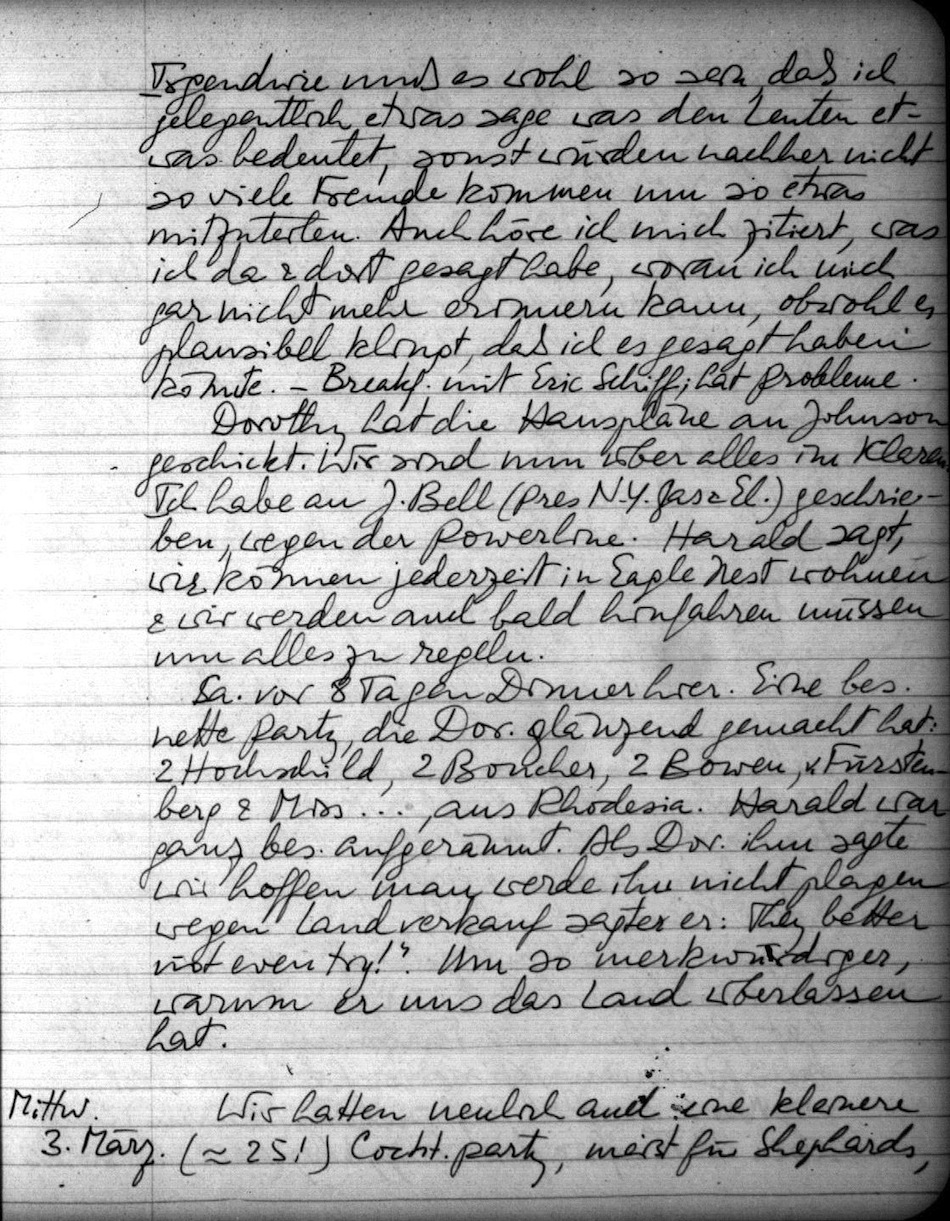 Irgendwie muß es wohl so sein, daß ich
gelegentlich etwas sage was den Leuten et-
was bedeutet, sonst würden nachher nicht
so viele Fremde kommen um so etwas
mitzuteilen. Auch höre ich mich zitiert, was
ich da & dort gesagt habe, woran ich mich
gar nicht mehr erinnern kann, obwohl es
plausibel klingt, daß ich es gesagt haben
könnte. – Breakf. mit Eric Schiff; hat Probleme.
Dorothy hat die Hauspläne an Johnson
geschickt. Wir sind nun über alles im Klaren
Ich habe an J. Bell (Pres N.Y. Gas & El.) geschrie-
ben, wegen der Powerline. Harald sagt,
wir können jederzeit in Eagle Nest wohnen
& wir werden auch bald hinfahren müssen
um alles zu regeln.
Sa. vor 8 Tagen Dinner hier. Eine bes.
nette Party, die Dor. glänzend gemacht hat:
2 Hochschild, 2 Boucher, 2 Bowen, v. Fürsten-
berg & Miss ..., aus Rhodesia. Harald war
ganz bes. aufgeräumt. Als Dor. ihm sagte
wir hoffen man werde ihn nicht plagen
wegen Landverkauf sagter er: They better
not even try!". Um so merkwürdiger,
warum er uns das Land überlassen
hat.
Mittw. Wir hatten neulich auch eine kleinere
3. März. (≈ 25!) Cockt. party, meist für Shephards,